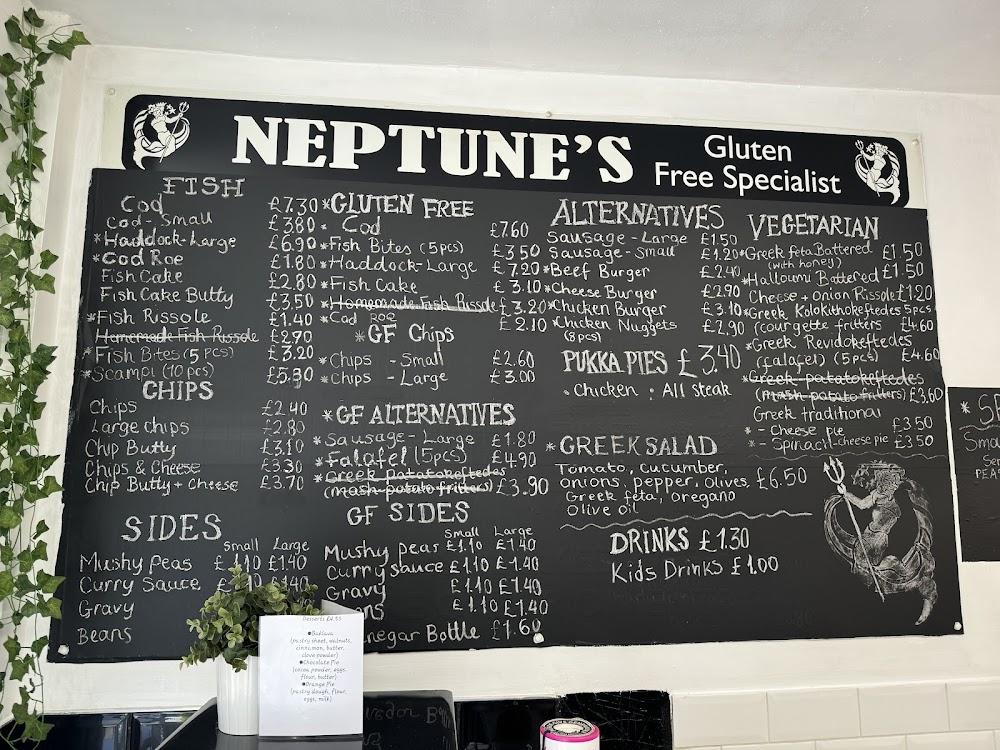 NEPTUNE'S
Gluten
Free Specialist
FISH
Cod £7.30
Cod - Small £3.80
*Haddock-Large £6.90
*Cod Roe £1.80
Fish Cake £2.80
Fish Cake Butty £3.50
*Fish Rissole £1.40
Homemade Fish Rissole £2.90
*Fish Bites (5 pcs) £3.20
*Scampi (10 pcs) £5.30
CHIPS
Chips £2.40
Large chips £2.80
Chip Butty £3.10
Chips & Cheese £3.30
Chip Butty + Cheese £3.70
SIDES
Small Large
Mushy Peas £1.10 £1.40
Curry Sauce £1.40
Gravy
Beans
*GLUTEN FREE
* Cod £7.60
*Fish Bites (5pcs) £3.50
*Haddock-Large £7.20
*Fish Cake £3.10
*Homemade Fish Rissole £3.20
*Cod Roe £2.10
*GF Chips
*Chips - Small £2.60
*Chips - Large £3.00
*GF ALTERNATIVES
*Sausage - Large £1.80
*Falafel (5pcs) £4.90
*Greek patatokeftedes
(mash potato fritters) £3.90
GF SIDES
Small Large
Mushy peas £1.10 £1.40
Curry sauce £1.10 £1.40
Gravy £1.10 £1.40
£1.10 £1.40
Bottle £1.60
ALTERNATIVES
Sausage - Large £1.50
Sausage - Small £1.20
*Beef Burger £2.40
*Cheese Burger £2.90
*Chicken Burger £3.10
*Chicken Nuggets £2.90
(8pcs)
PUKKA PIES £3.40
• Chicken • All Steak
*GREEK SALAD
Tomato, cucumber,
onions, pepper, olives £6.50
Greek feta, oregano
Olive oil
DRINKS £1.30
Kids Drinks £1.00
VEGETARIAN
*Greek feta Battered £1.50
(with honey)
*Halloumi Battered £1.50
Cheese + Onion Rissole £1.20
*Greek Kolokithokeftedes 5pcs
(courgette fritters £4.60
*Greek Revidokeftedes
(falafel) (5pcs) £4.60
*Greek patatokeftedes
(mash potato fritters) £3.60
Greek traditional
* - Cheese pie £3.50
* - Spinach-cheese pie £3.50
Desserts £4.95
●Baklava
(pastry sheet, walnuts,
cinnamon, butter,
clove powder)
●Chocolate Pie
(cocoa powder, eggs,
flour, butter)
●Orange Pie
(pastry dough, flour,
eggs, milk)